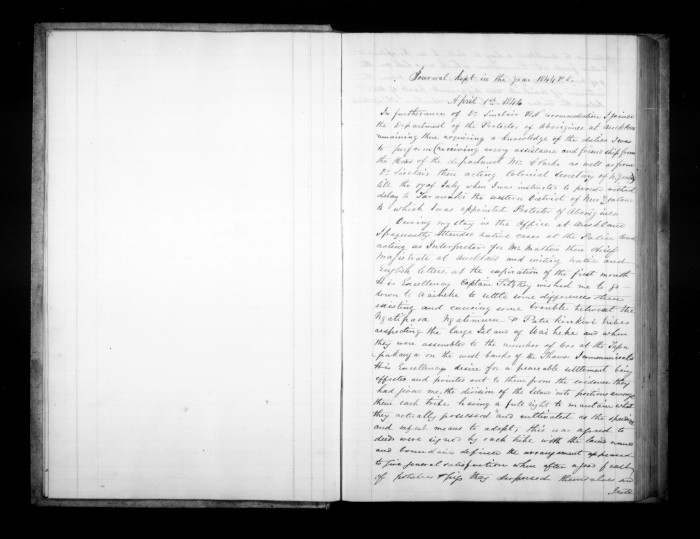 Journal kept in the year 1844 &c.
April 1st 1844
In furtherance of Dr Sinclair's recommendation I joined
the Department of the Protector of Aborigines at Auckland
remaining there acquiring a knowledge of the duties I was
to perform (receiving every assistance and friendship from
the Head of the department Mr Clarke as well as from
Dr Sinclair then acting Colonial Secretary of N Zealand)
till the 17 of July when I was instructed to proceed without
delay to Taranaki the western District of New Zealand
to which I was appointed Protector of Aborigines
During my stay in the Office at Auckland
I frequently attended native cases at the Police Court
acting as Interpreter for Mr Mathew then Chief
Magistrate at Auckland and writing native and
English letters, at the expiration of the first month
His Excellency Captain FitzRoy wished me to go
down to Waiheke to settle some differences there
existing and causing some trouble between the
Ngatipaoa Ngatimaru & Patukirikiri tribes
respecting the large Island of Waiheke and when
they were assembled to the number of 600 at the
pakanga on the west banks of the Thames I communicated
His Excellency's desire for a peaceable settlement being
effected and pointed out to them from the evidence they
had given me, the division of the Island into portions among
them each tribe having a full right to maintain what
they actually possessed and cultivated as the speediest
and safest means to adopt; this was agreed to
deeds were signed by each tribe with the land named
and boundaries defined the arrangement appeared
to give general satisfaction when after a good feast
of potatoes & pigs they dispersed themselves and